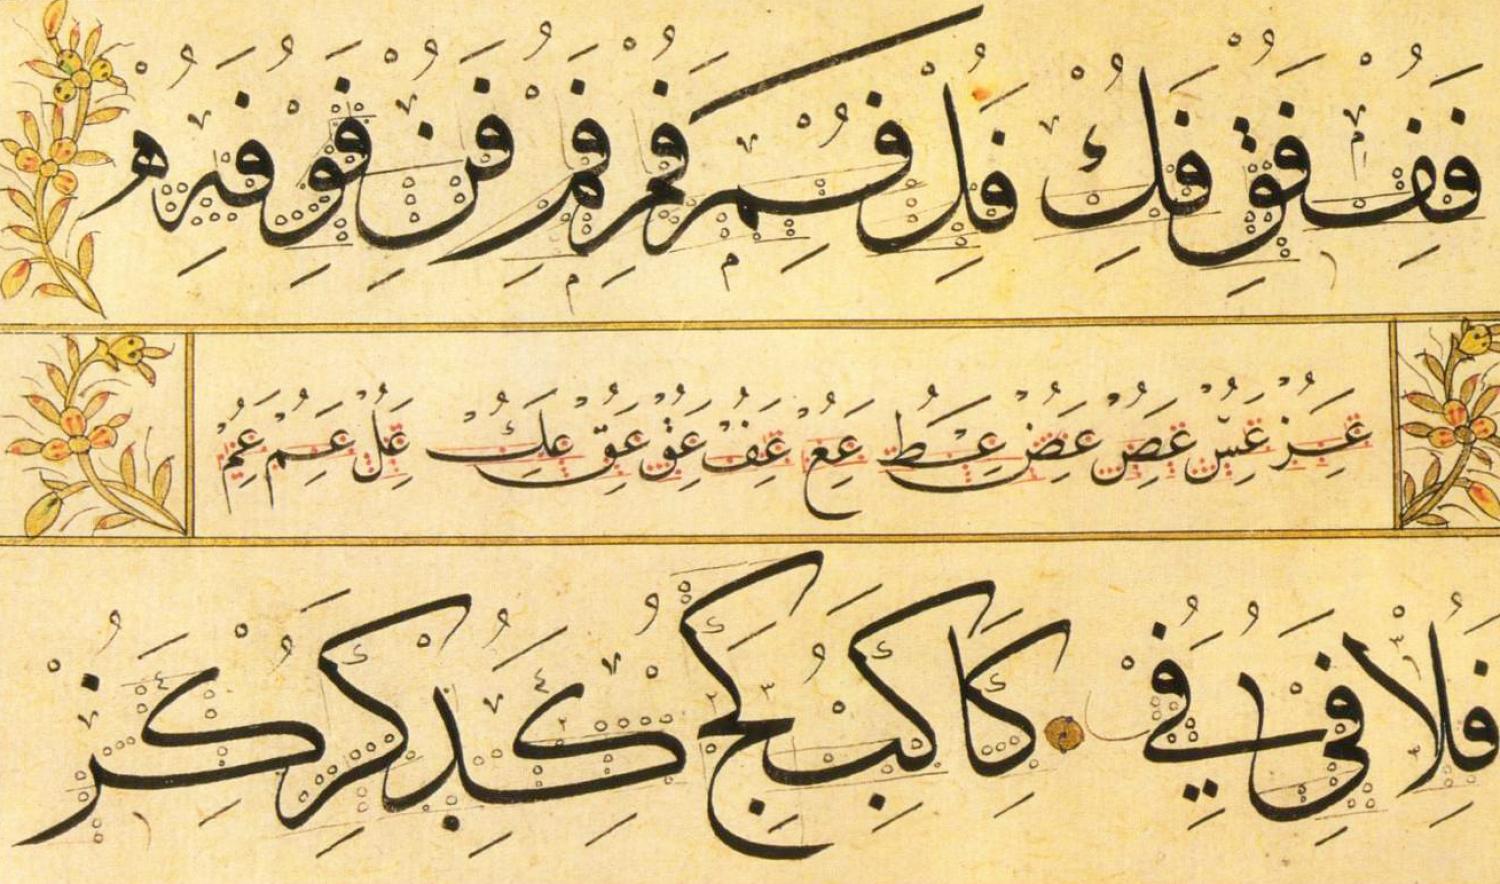 فف فق فك فل فم فم فم فن فو فه
عس عص عض عط عع عف عق عق عك عل عم عم
فلا فى في كا كب كج كد كر كز